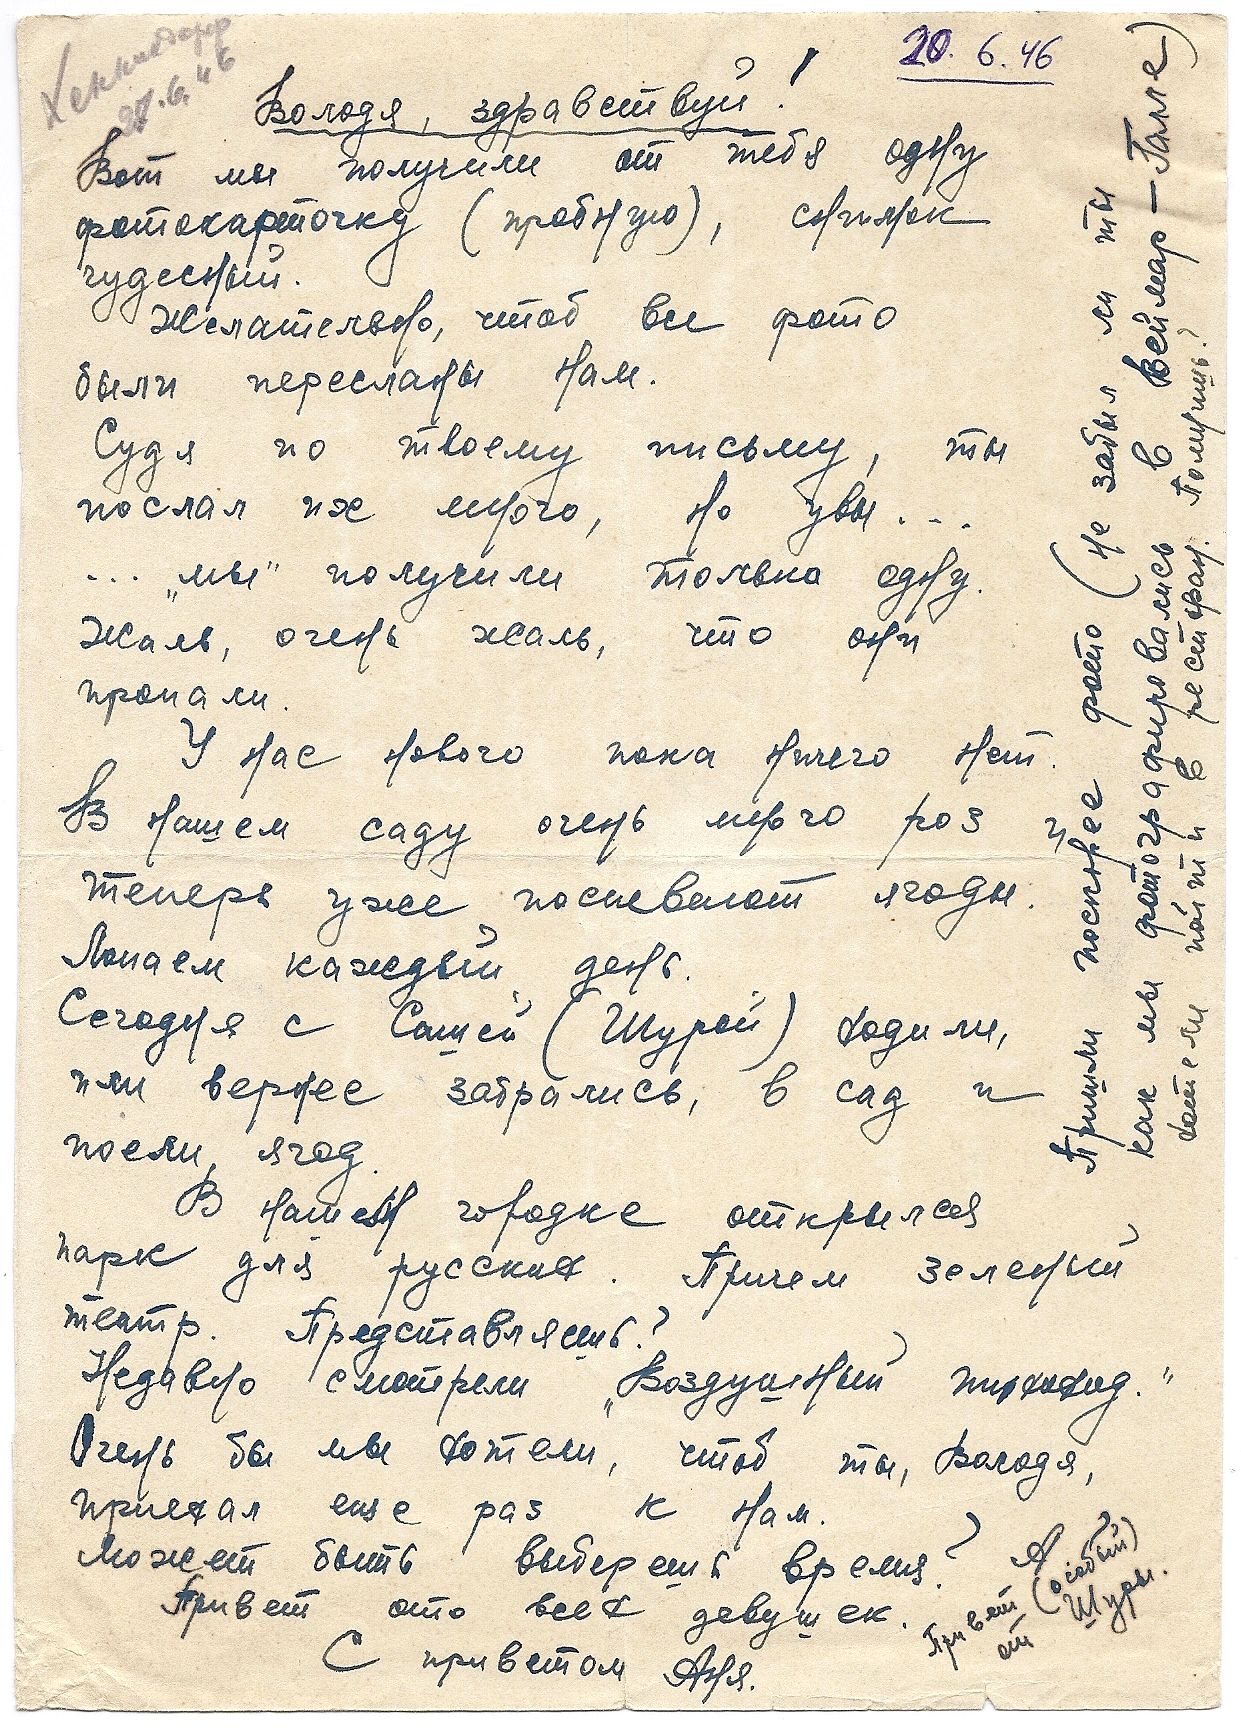 Хеннигсдорф
27.6.46
20.6.46
Володя, здравствуй!
Вот мы получили от тебя одну
фотокарточку (пробную), снимок
чудесный.
Желательно, чтоб все фото
были пересланы нам.
Судя по твоему письму, ты
послал их много, но увы...
... „мы" получили только одну.
Жаль, очень жаль, что они
пропали.
У нас нового пока ничего нет.
В нашем саду очень много роз и
теперь уже поспевают ягоды.
Лопаем каждый день.
Сегодня с Сашей (Шурой) ходили,
или вернее забрались, в сад и
поели, ягод.
В нашем городке открылся
парк для русских. Причем зеленый
театр. Представляешь?
Недавно смотрели „Воздушный
Очень бы мы хотели, чтоб ты, Володя,
приехал еще раз к нам.
Может быть выберешь время?
Привет ото всех девушек.
С приветом Аня.
А
Привет (особый)
от Шуры.
Пришли поскорее фото (не забыл ли ты
как мы фотографировались в Веймар — Галле)
хотели пойти в ресторан. Помнишь?